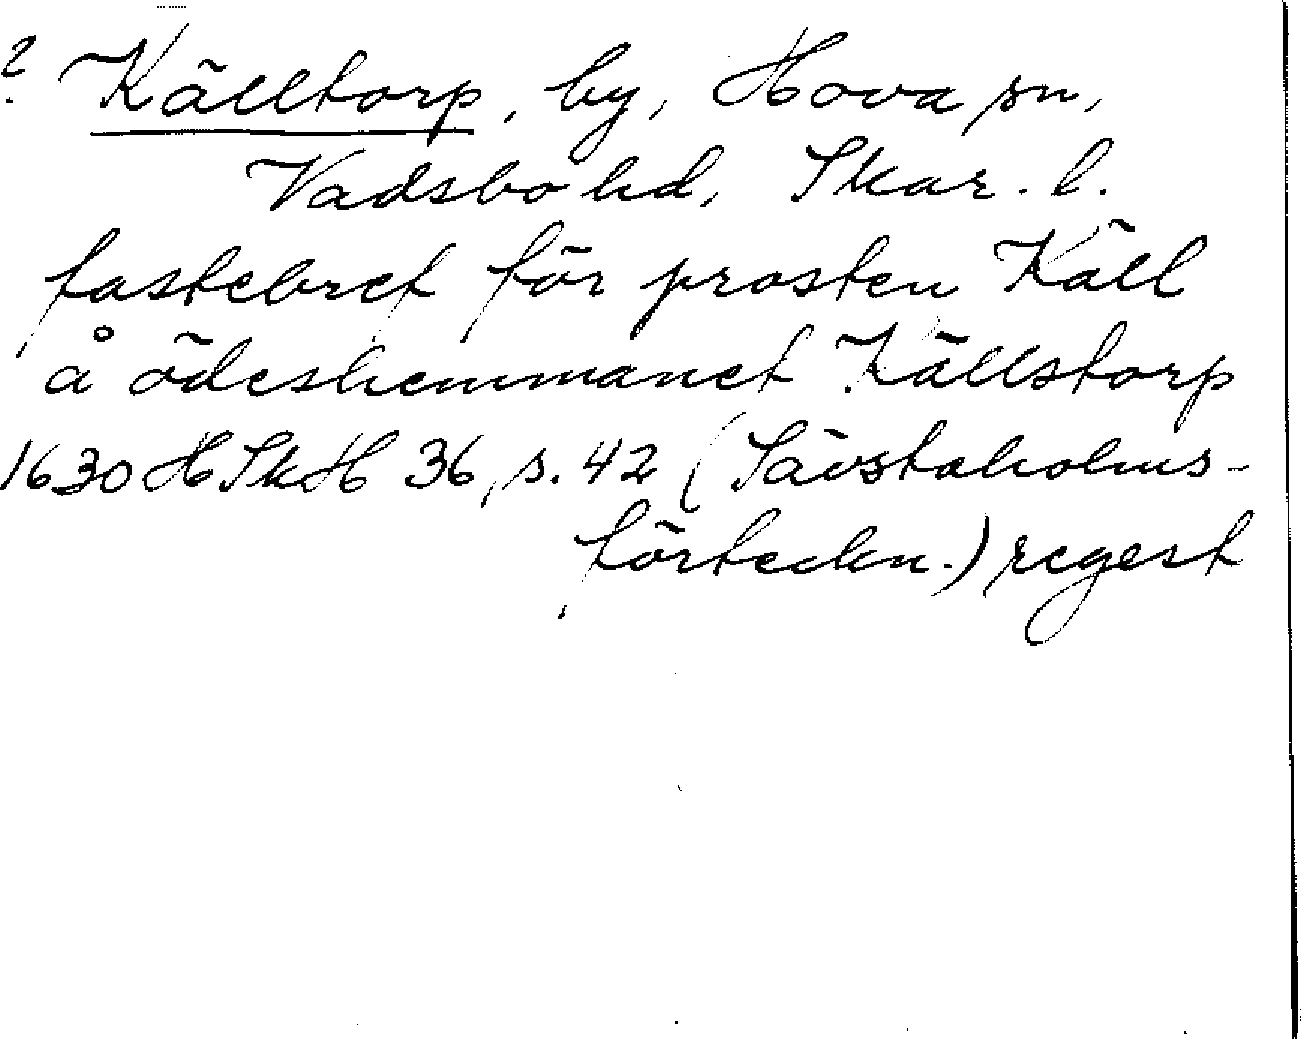 ? Källtorp, by, Hova sn,
Vadsbo hd, Skar. l.
fastebref för prosten Käll
å ödeshemmanet Källstorp
1630 HSkH 36, s. 42 (Sävstaholms-
förteckn.) regest